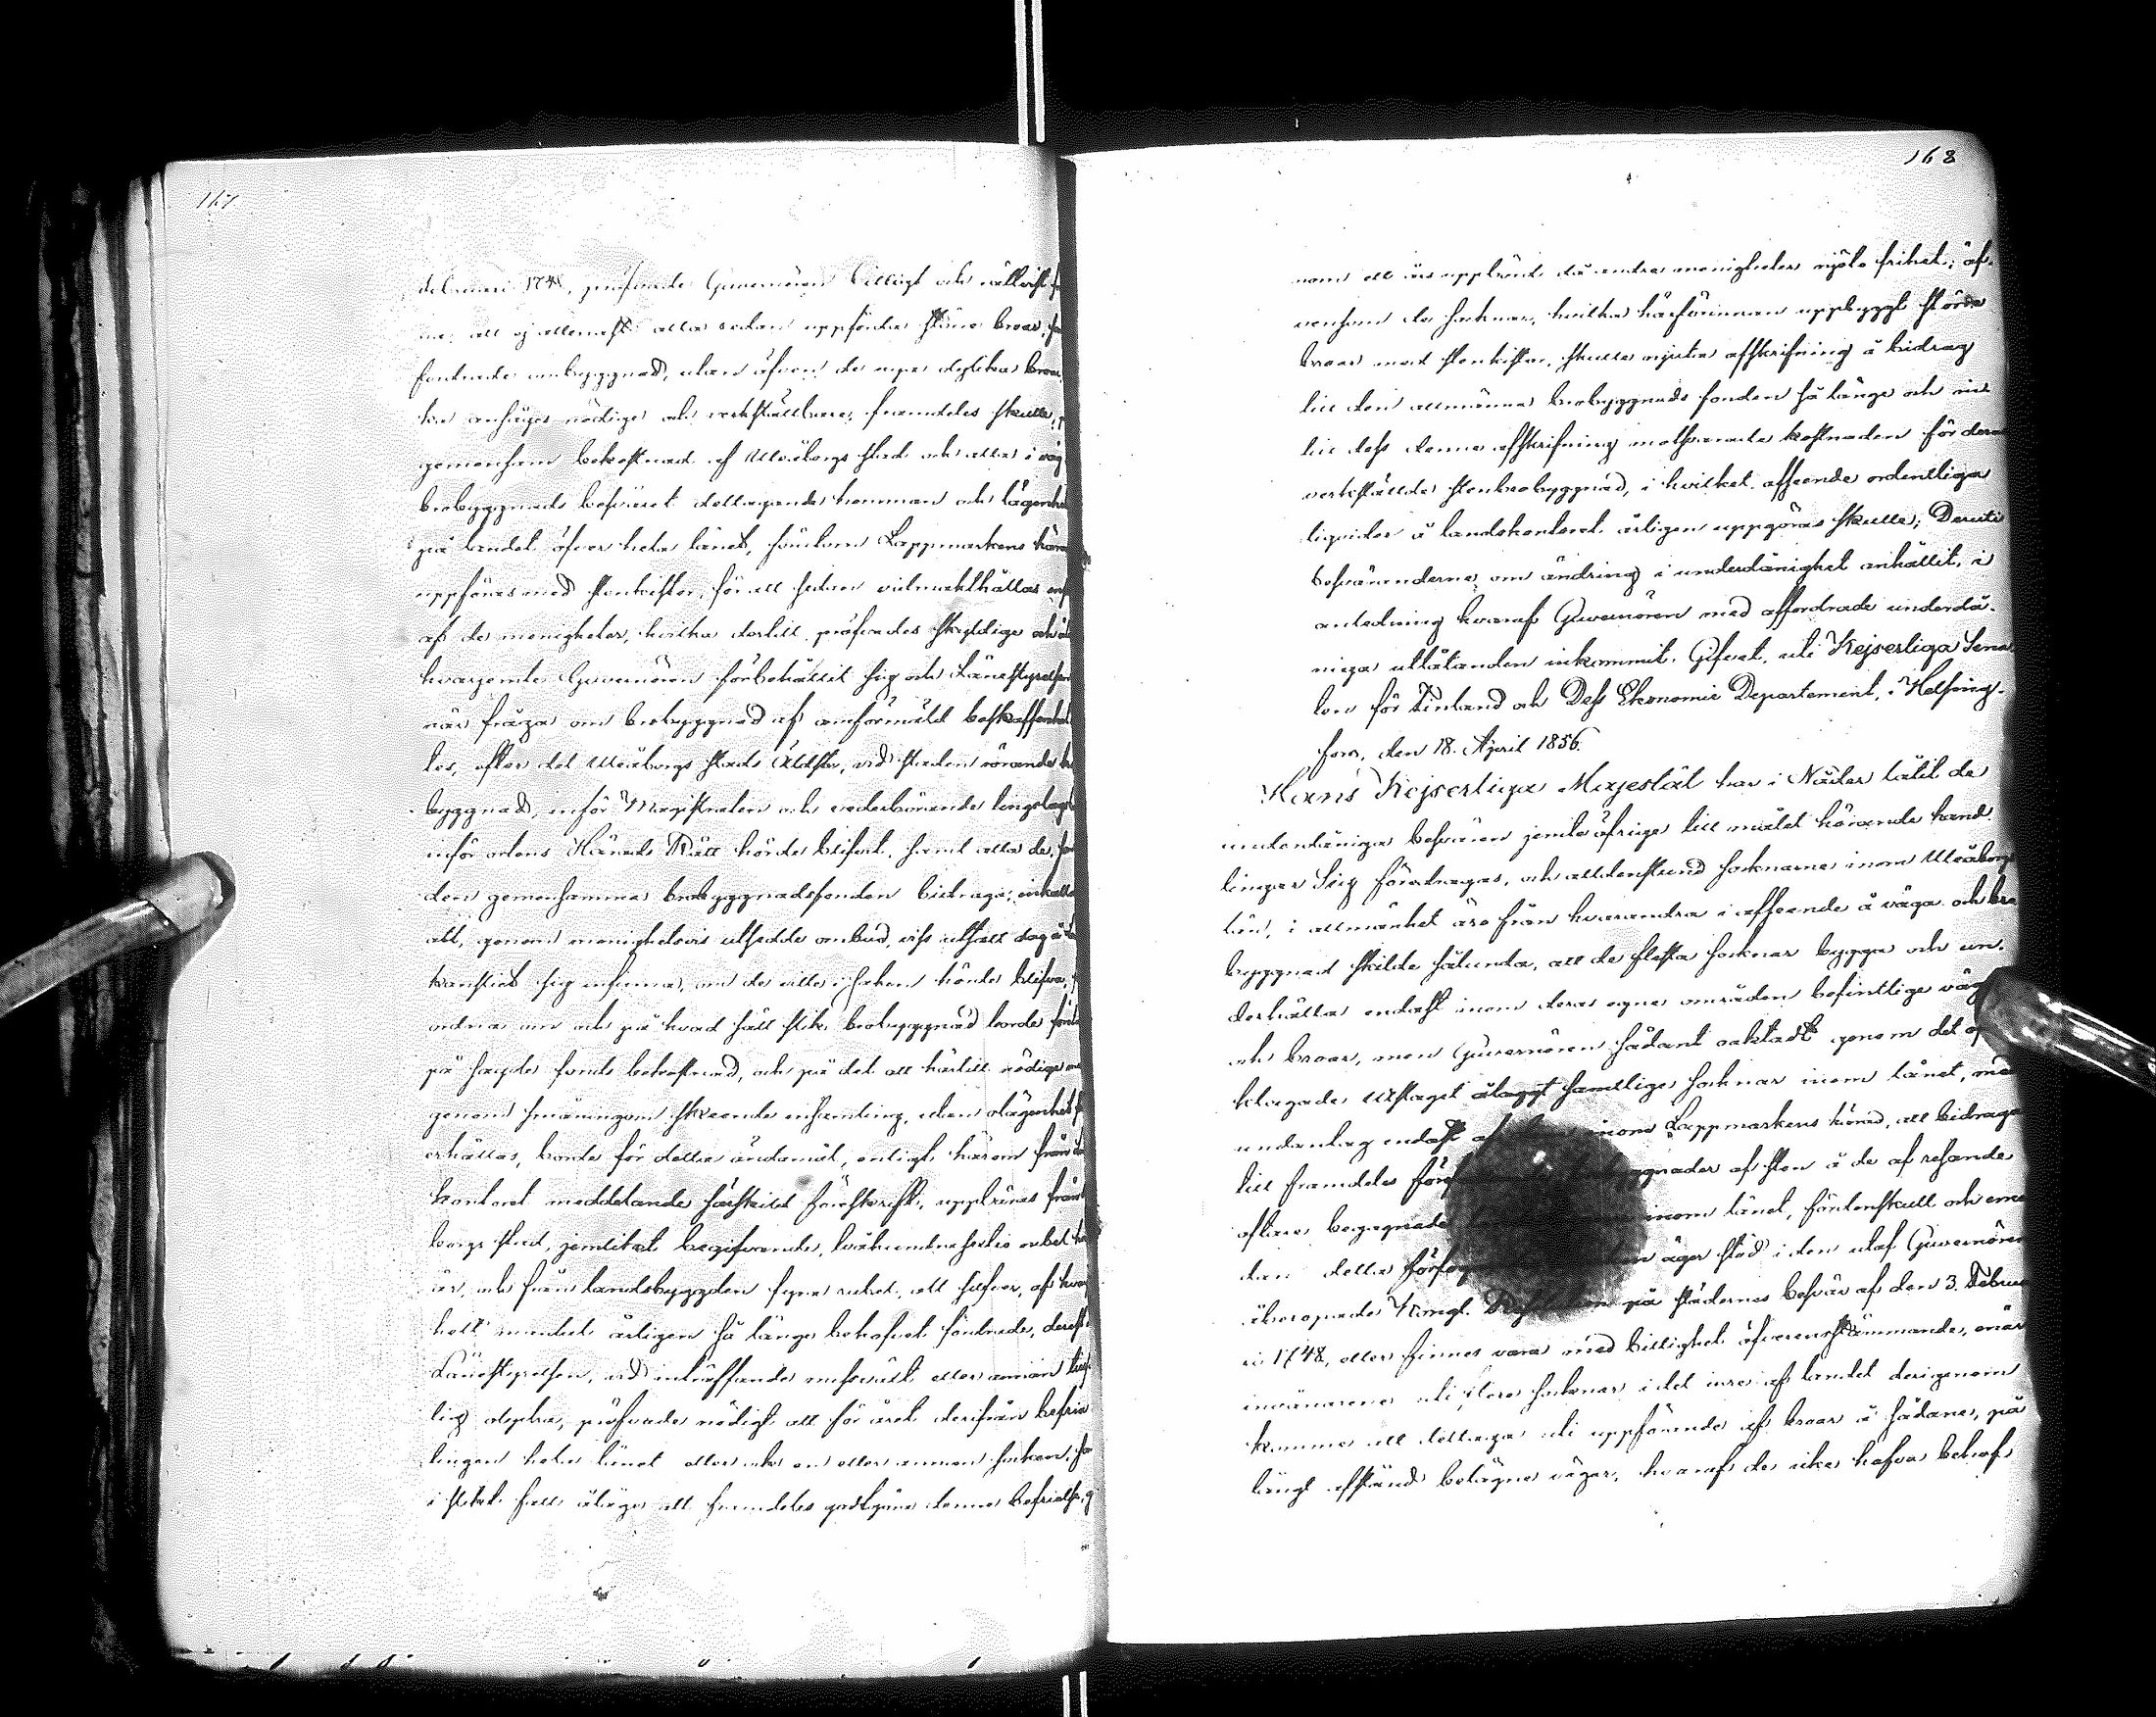 167
debruari 1748, pröfvade Guvernören billigt och
att ej allenast alla redan uppförda större broar,
fordrade ombyggnad, utan äfven de nya dylika
anläggas nödiga och verkställbara, framdeles skulle,
gemensam bekostnad af Uleåborgs stad och alla i väg
brobyggnads besväret deltagande hemman och lägenhe
på landet öfver hela länet, förutom Lappmarkens härad
uppföras med stenkistor, för att sedan vidmakthållas
af de menigheter, hvilka dertill pröfvades skyldige och
hvarjemte Guvernören förbehållit sig och Länestyrelsen
när fråga om brobyggnad af omförmäld beskaffenhet
efter det Uleåborgs stads Äldste, vid staden rörande
byggnad, inför Magistraten och vederbörande tingslag
inför ortens Härads Rätt hörde blifvit, samt alla de,
den gemensamma brobyggnadsfonden bidraga, inkalla
att, genom menighetsvis utsedde ombud, viss utsatt dag å
kansliet sig infinna, om de ville i saken hörde blifva,
ordna om och på hvad sätt slik brobyggnad borde
på sagde fonds bekostnad, och på det att härtill nödige
genom småningom skeende insamling, utan olägenhet
erhållas, borde för detta ändamål, enligt härom från
kontoret meddelande särskild föreskrift, uppbäras från
borgs stad, jemlikt begifvande, tvåhundrasextio rubel
år, och från landsbyggden fyra rubel, allt silfver, af hvar
helt mantal årligen så länge behofvet fordrade, derest
Länestyrelsen, vid inträffande missväxt eller annan
lig olycka, pröfvade nödigt att för året derifrån befria
tingen hela länet eller ock en eller annan socken,
i slikt fall ålåge att framdeles godtgöra denna befrielse,
168
nom ett års uppbörd då andra menigheter njöto frihet; äf-
vensom de socknar, hvilka härförinnan uppbyggt större
broar med stenkistor, skulle njuta afskrifning å bidrag
till den allmänna brobyggnads fonden så länge och in
till dess denna afskrifning motsvarade kostnaden för deras
verkställde stenbrobyggnad, i hvilket afseende ordentliga
liquider å landskontoret årligen uppgöras skulle; Deruti
besvärenderne om ändring i underdånighet anhållit, i
anledning hvaraf Guvernören med affordrade underdå-
niga utlåtanden inkommit. Gifvet, uti Kejserliga Sena
ten för Finland och Dess Ekonomie Departement, i Helsing-
fors, den 18. April 1856.
Hans Kejserliga Majestät har i Nåder låtit de
underdåniga besvären jemte öfriga till målet hörande hand-
lingar Sig föredragas, och alldenstund socknarne inom Uleåborgs
län, i allmänhet äro från hvarandra i afseende å väga och bro
byggnad skilde sålunda, att de flesta socknar bygga och un-
derhålla endast inom deras egna områden befintlige väg
och broar, men Guvernören sådant oaktadt genom det
klagade Utslaget ålagt samtlige socknar inom länet, med
undantag endast af inom Lappmarkens härad, att bidraga
till framdeles byggnader af sten å de af resande
oftare begagnade inom länet, förtenskull och eme
dan detta äger stöd i den utaf Guvernören
åberopade Kongl. Resolution på städernes besvär af den 3. Februa
ri 1748, eller finnes vara med billighet öfverensstämmande, enär
invånarene uti flere socknar i det inre af landet derigenom
komme att deltaga uti uppförande af broar å sådane, på
långt afstånd belägne vägar, hvaraf de icke hafva behof